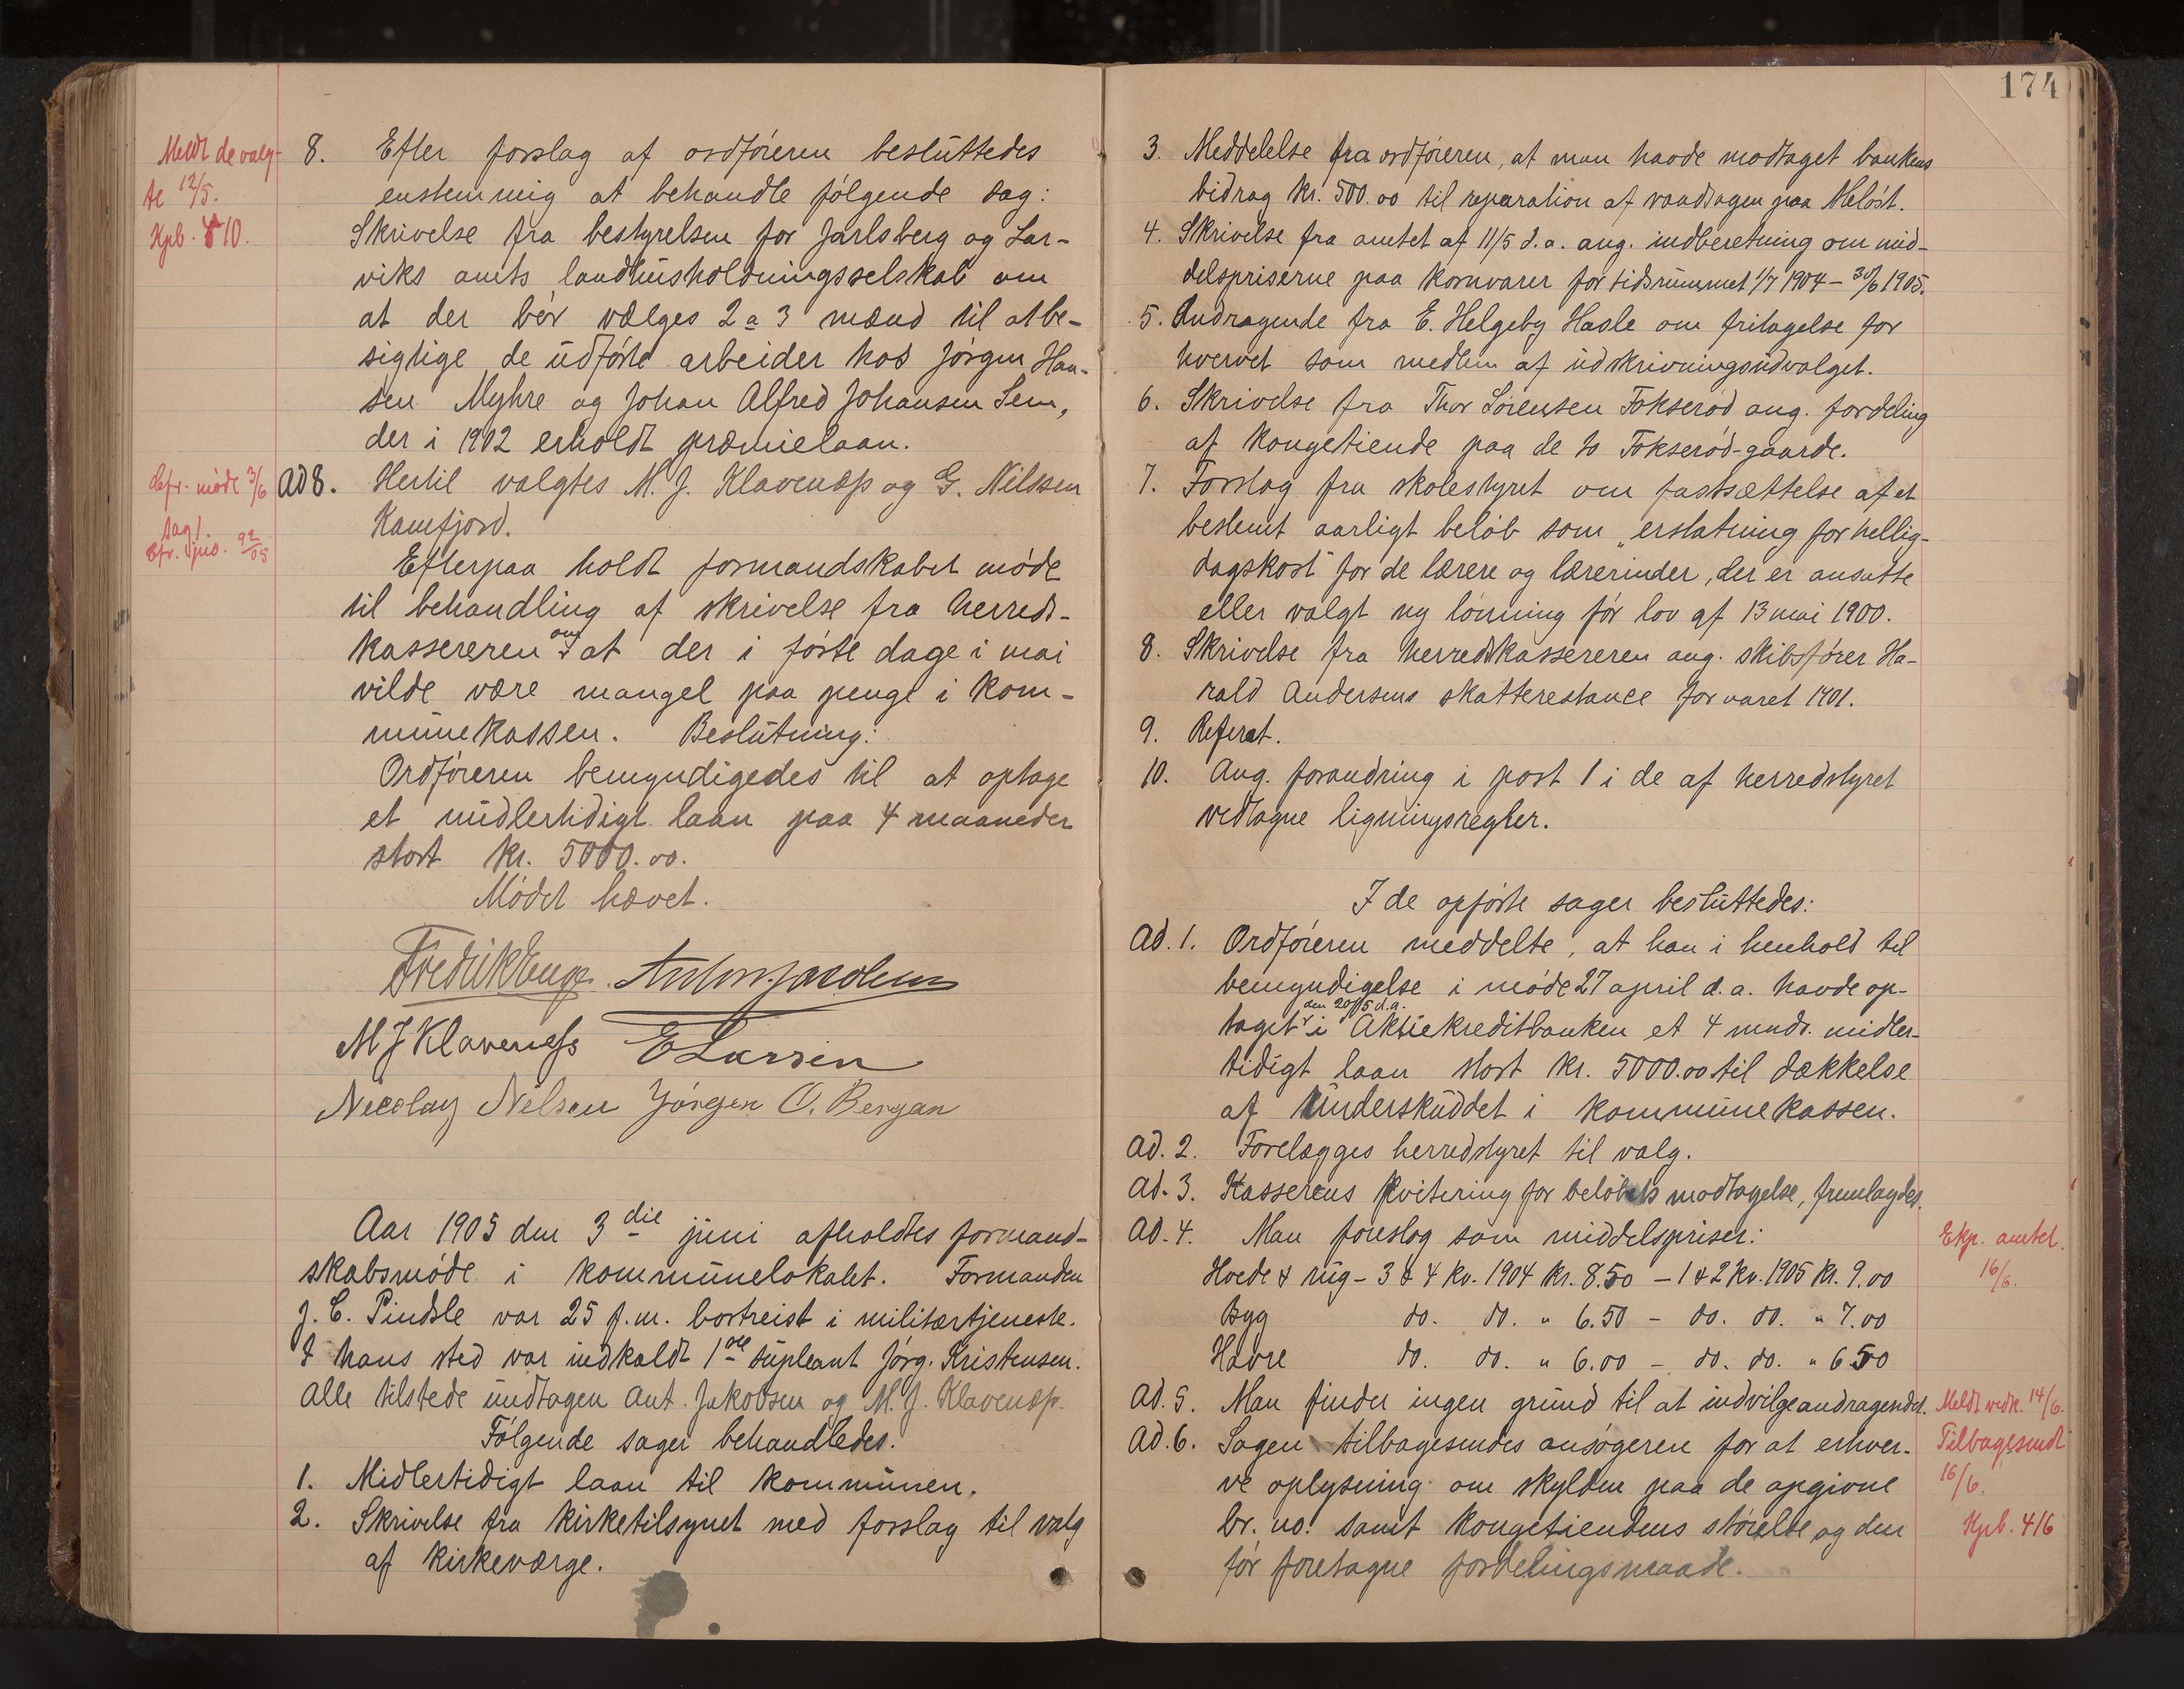 Meldt de valg-
te 12/5.
Kpb. 410.
8. Efter forslag af ordføreren besluttedes
enstemmig at behandle følgende sag:
Skrivelse fra bestyrelsen for Jarlsberg og Lar-
viks amts landhusholdningsselskab om
at der bør vælges 2 a 3 mænd til at be-
sigtige de udførte arbeider hos Jørgen Han-
sen Myhre og Johan Alfred Johansen Sem,
der i 1902 erholdt præmielaan.
Cfr. møde 3/6
sag 1.
Cfr. jno. 92/05
Ad 8. Hertil valgtes M. J. Klavenæss og G. Nilssen
Kamfjord.
Efterpaa holdt formandskabet møde
til behandling af skrivelse fra herreds-
kassereren om at der i første dage i mai
vilde være mangel paa penge i kom-
munekassen. Beslutning:
Ordføreren bemyndigedes til at optage
et midlertidigt laan paa 4 maaneder
stort kr. 5000.00.
Mødet hævet.
Fredrik Enge. Anton Jacobsen
M J Klaveness E Larsen
Nicolay Nilsen Jørgen O. Bergan
Aar 1905 den 3die juni afholdtes formand-
skabsmøde i kommunelokalet. Formanden
J. C. Pindsle var 25 f. m. bortreist i militærtjeneste.
I hans sted var indkaldt 1ste supleant Jørg. Kristensen.
Alle tilstede undtagen Ant. Jakobsen og M. J. Klavenæss.
Følgende sager behandledes.
1. Midlertidigt laan til kommunen.
2. Skrivelse fra kirketilsynet med forslag til valg
af kirkeværge.
174
3. Meddelelse fra ordføreren, at man havde modtaget bankens
bidrag kr. 500.00 til reparation af vandtagen paa Meløst.
4. Skrivelse fra amtet af 11/5 d.a. ang. indberetning om mid-
delspriserne paa kornvarer for tidsrummet 1/7 1904 – 30/6 1905.
5. Andragende fra E. Helgeby Hasle om fritagelse for
hvervet som medlem af udskrivningsudvalget.
6. Skrivelse fra Thor Sørensen Fokserød ang. fordeling
af kongetiende paa de to Fokserød-gaarde.
7. Forslag fra skolestyret om fastsættelse af et
bestemt aarligt beløb som „erstatning for hellig-
dagskost" for de lærere og lærerinder, der er ansatte
eller valgt ny lønning før lov af 13 mai 1900.
8. Skrivelse fra herredskassereren ang. skibsfører Ha-
rald Andersens skatterestance for aaret 1901.
9. Referat.
10. Ang. forandring i post 1 i de af herredstyret
vedtagne ligningsregler.
I de opførte sager besluttedes:
Ad. 1. Ordføreren meddelte, at han i henhold til
bemyndigelse i møde 27 april d. a. havde op-
den 20/5 d.a.
taget i Aktiekreditbanken et 4 mnds. midler-
tidigt laan stort kr. 5000.00 til dækkelse
af underskuddet i kommunekassen.
Ad. 2. Forelægges herredstyret til valg.
Ad. 3. Kasserens kvitering for beløbets modtagelse, fremlagdes.
Ad. 4. Man foreslog som middelspriser:
Ekp. amtet.
16/6.
Hvede & rug – 3 & 4 kv. 1904 kr. 8.50 – 1 & 2 kv. 1905 kr. 9.00
Byg do. do. „ 6.50 – do. do. „ 7.00
Havre do. do. „ 6.00 – do. do. „ 6.50
Ad. 5. Man finder ingen grund til at indvilge andragendet.
Meldt vedk. 14/6.
Ad. 6. Sagen tilbagesendes ansøgeren for at erhver-
ve oplysning om skylden paa de opgivne
br. no. samt kongetiendens størelse og den
før foretagne fordelingsmaade.
Tilbagesendt
16/6.
Kpb. 416